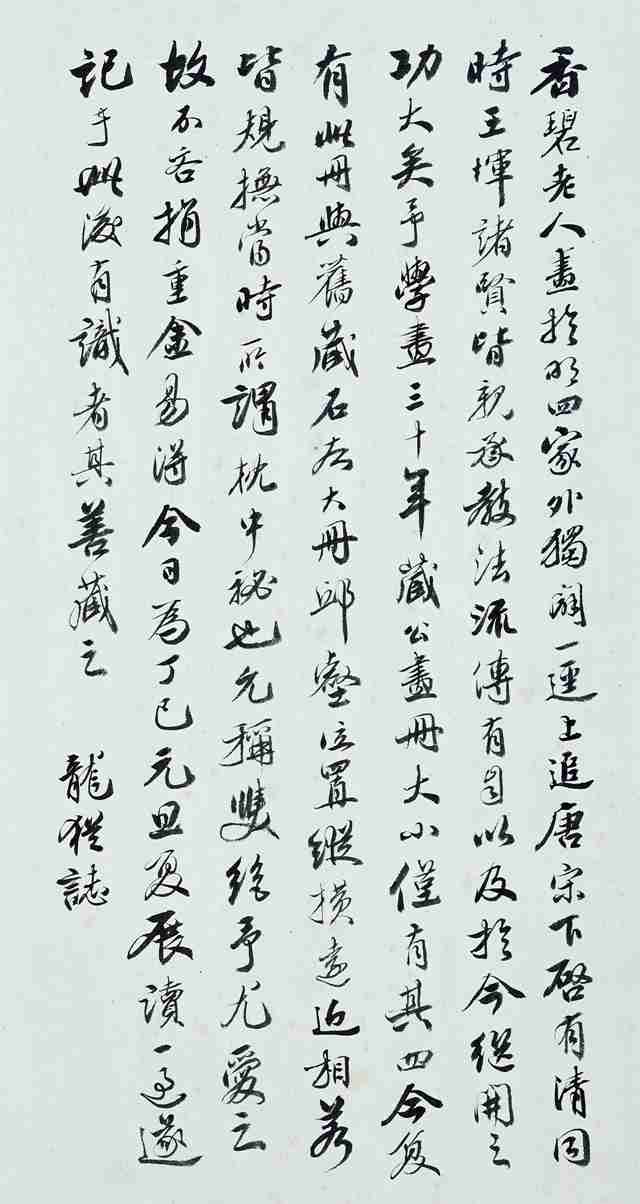 香碧老人畫於明四家外獨闢一逕上追唐宋下啓有清同
時王惲諸賢皆親承教法流傳有自以及於今繼開之
功大矣予學畫三十年藏公畫冊大小僅有其四今復
有此冊與舊藏石谷大冊邱壑位置縱橫遠近相若
皆規撫當時所謂枕中祕也允稱雙絕予尤愛之
故不吝捐重金易得今日為丁巳元旦复展讀一過遂
記于此後有識者其善藏之
龍猶誌